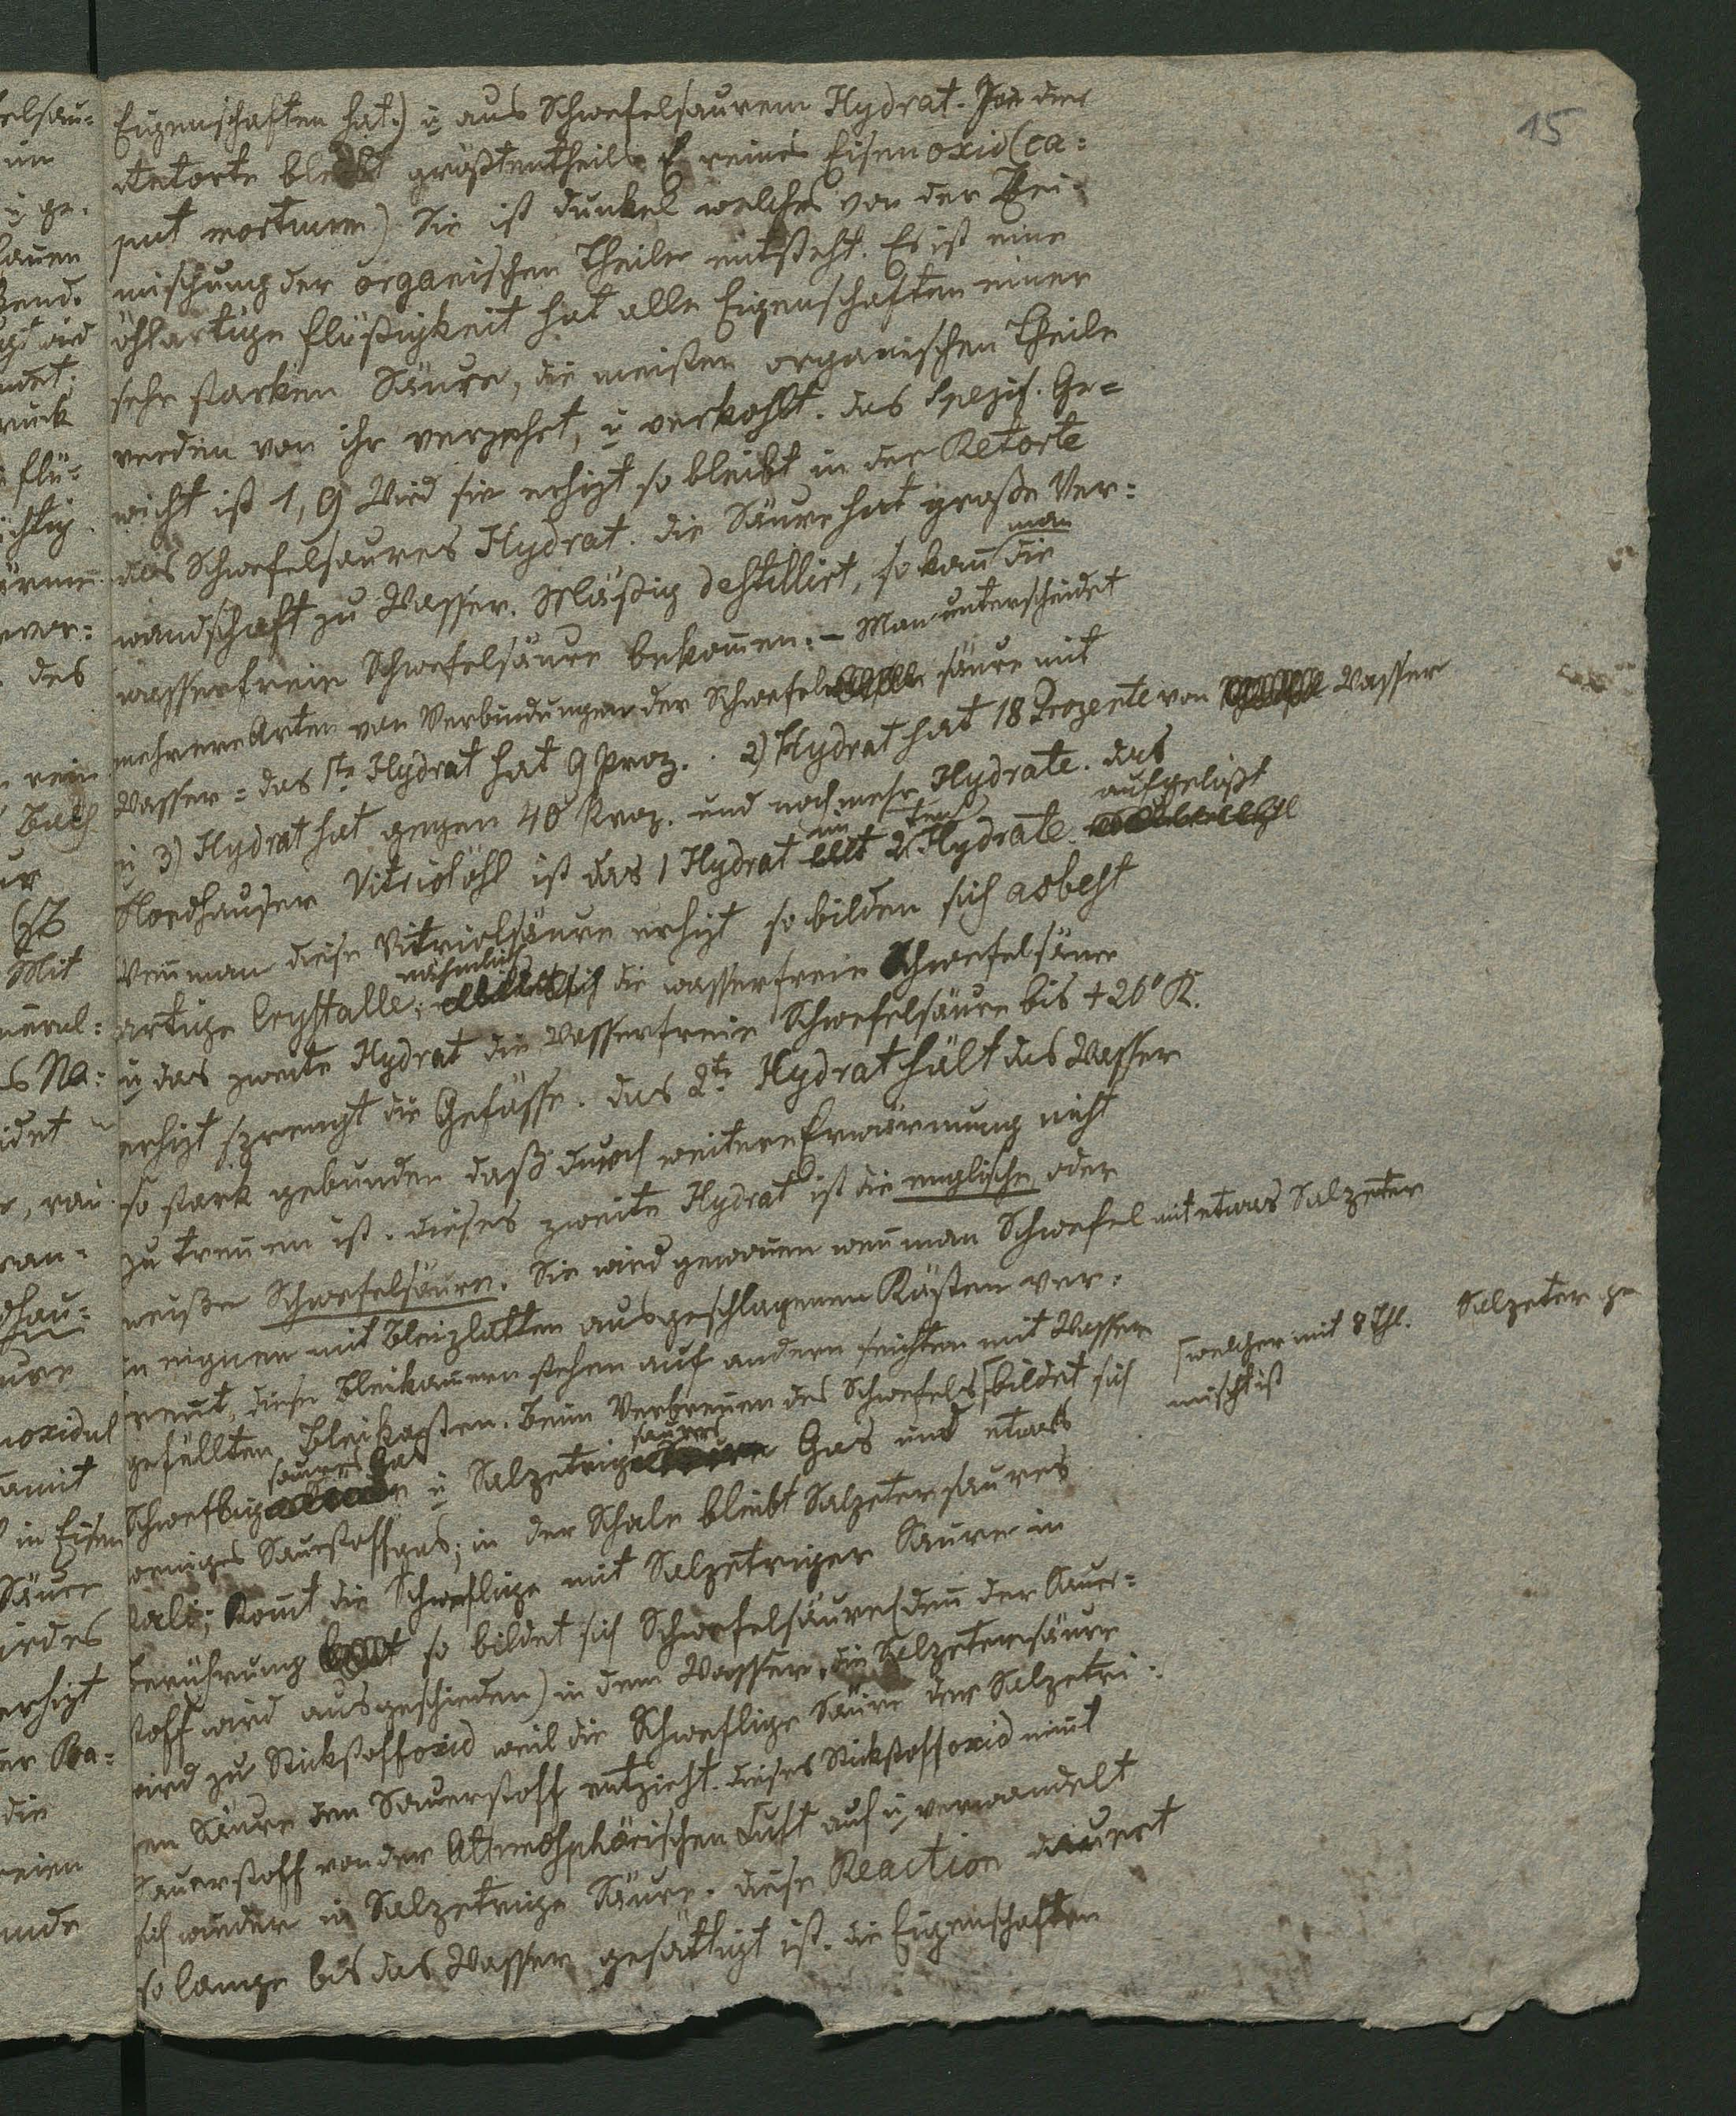 15
Eigenschaften hat.) u aus Schwefelsaurem Hydrat. In der
Retorte bleibt größtentheils reines Eisenoxid (ca=
put mortuum) Sie ist dunkel welches von der Bei=
mischung der organischen Theile entsteht. Es ist eine
öhlartige Flüßigkeit hat alle Eigenschaften einer
sehr starken Säure, die meisten organischen Theile
werden von ihr verzehrt, u verkohlt. das Spezif. Ge=
wicht ist 1,9 Wird sie erhizt so bleibt in der Retorte
das Schwefelsaures Hydrat. die Säure hat große Ver=
wandschaft zu Wasser. Mäßig destillirt, so kan̄ man die
wasserfreie Schwefelsäure bekom̄en. – Man unterscheidet
mehrere Arten von Verbindungen der Schwefel säure mit
Wasser = das 1te Hydrat hat 9 Proz. . 2) Hydrat hat 18 Prozente von Wasser
u 3) Hydrat hat gegen 40 Proz. und noch mehr Hydrate. das
Nordhauser Vitriolöhl ist das 1 Hydrat im 2ten Hydrate. aufgelößt
Wen̄ man diese Vitriolsäure erhizt so bilden sich asbest
artige Crystalle; nähmlich die wasserfreie Schwefelsäure
u das zweite Hydrat die Wasserfreie Schwefelsäure bis +26° R.
erhizt sprengt die Gefässe. das 2te Hydrat hält das Wasser
so stark gebunden daß durch weitere Erwärmung nicht
zu tren̄en ist. dieses zweite Hydrat ist die englische oder
weiße Schwefelsäure. Sie wird gewon̄en wen̄ man Schwefel mit etwas Salpeter
in eignen mit Bleiplatten ausgeschlagenen Kästen ver=
ren̄t, diese Bleikam̄ern stehen auf andern seichten mit Wasser
gefüllten Bleikasten. Beim Verbren̄en des Schwefels [bildet sich
[welcher mit 8 Thl. Salpeter ge
mischt ist
Schweflig saures Gas u Salpetrig saures Gas und etwas
weniges Sauerstoffgas; in der Schale bleibt Salpetersaures
Kali; Kom̄t die Schweflige mit Salpetriger Säure in
Berührung so bildet sich Schwefelsäure (den̄ der Sauer=
stoff wird ausgeschieden) in dem Wasser. die Salpetersäure
wird zu Stickstoffoxid weil die Schweflige Säure der Salpetri=
en Säure den Sauerstoff entzieht. dieses Stickstoffoxid nim̄t
Sauerstoff von der Atmosphärischen Luft auf u verwandelt
sich wieder in Salpetrige Säure. diese Reaction dauert
so lange bis das Wasser gesättigt ist. die Eigenschaften